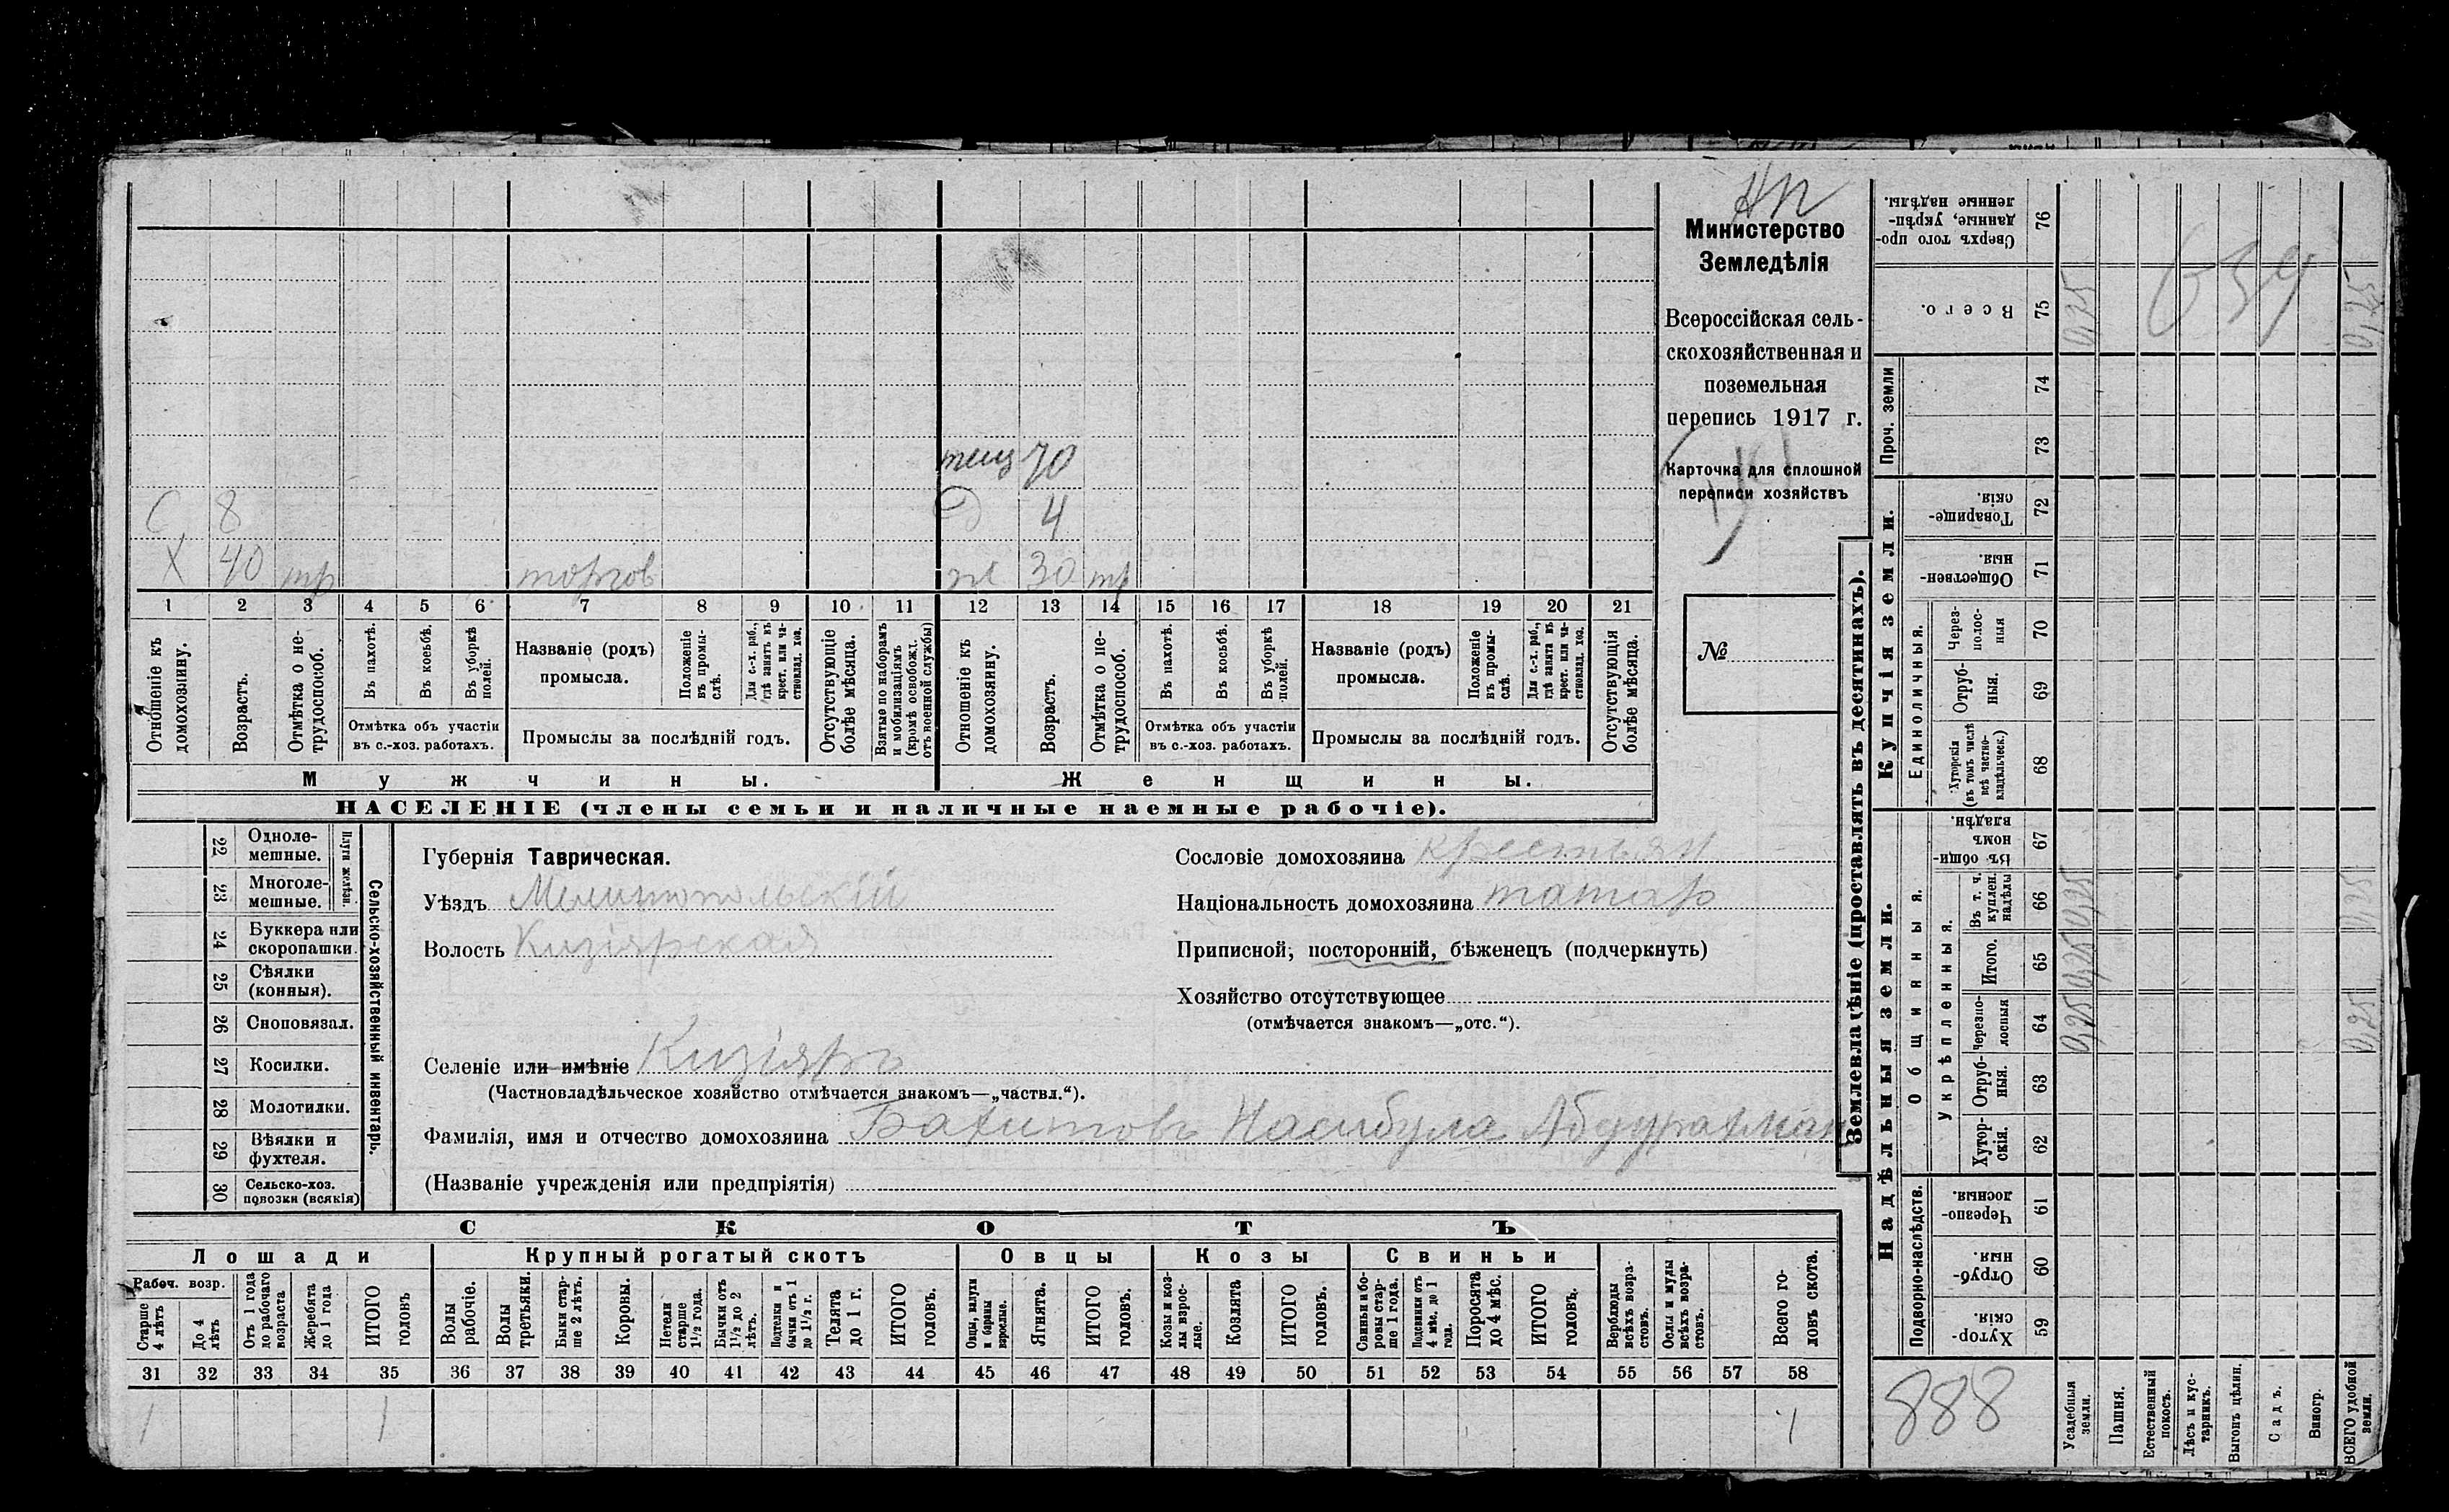 НП
Министерство
Земледѣлія
Всероссійская сель-
скохозяйственная и
поземельная
перепись 1917 г.
Карточка для сплошной
переписи хозяйствъ
№
тещ 70
С 8 Д 4
Х 40 тр торгов ж 30 тр
1 2 3 4 5 6 7 8 9 10 11 12 13 14 15 16 17 18 19 20 21
Отношеніе къ домохозяину.
Возрастъ.
Отмѣтка о не-трудоспособ.
Въ пахотѣ.
Въ косьбѣ.
Въ уборкѣ полей.
Отмѣтка объ участіи
въ с.-хоз. работахъ.
Названіе (родъ)
промысла.
Положеніе въ промы-слѣ.
Для с.-х. раб., гдѣ занятъ въ крест. или ча-стновлад. хоз.
Промыслы за послѣдній годъ.
Отсутствующіе болѣе мѣсяца.
Взятые по наборамъ и мобилизаціямъ (кромѣ освобожд. отъ военной службы)
Отношеніе къ домохозяину.
Возрастъ.
Отмѣтка о не-трудоспособ.
Въ пахотѣ.
Въ косьбѣ.
Въ уборкѣ полей.
Отмѣтка объ участіи
въ с.-хоз. работахъ.
Названіе (родъ)
промысла.
Положеніе въ промы-слѣ.
Для с.-х. раб., гдѣ занята въ крест. или ча-стновлад. хоз.
Промыслы за послѣдній годъ.
Отсутствующія болѣе мѣсяца.
Мужчины. Женщины.
НАСЕЛЕНІЕ (члены семьи и наличные наемные рабочіе).
22 Одноле-мешные.
23 Многоле-мешные.
Плуги желѣзн.
24 Буккера или скоропашки.
25 Сѣялки (конныя).
26 Сноповязал.
27 Косилки.
28 Молотилки.
29 Вѣялки и фухтеля.
30 Сельско-хоз. повозки (всякія)
Сельско-хозяйственный инвентарь.
Губернія Таврическая.
Уѣздъ Мелитопольскій
Волость Кизіярская
Селеніе или имѣніе Кизіяръ
(Частновладѣльческое хозяйство отмѣчается знакомъ—„частвл.“).
Фамилія, имя и отчество домохозяина Бахитовъ Насибула Абдурахман
(Названіе учрежденія или предпріятія)
Сословіе домохозяина крестьян
Національность домохозяина татар
Приписной, посторонній, бѣженецъ (подчеркнуть)
Хозяйство отсутствующее
(отмѣчается знакомъ—„отс.“).
СКОТЪ
Лошади Крупный рогатый скотъ Овцы Козы Свиньи
Рабоч. возр.
Старше 4 лѣтъ
До 4 лѣтъ
Отъ 1 года до рабочаго возраста
Жеребята до 1 года
ИТОГО головъ
Волы рабочіе.
Волы третьяки.
Быки стар-ше 2 лѣтъ.
Коровы.
Нетели старше 1½ года.
Бычки отъ 1½ до 2 лѣтъ.
Подтелки и бычки отъ 1 до 1½ г.
Телята до 1 г.
ИТОГО головъ.
Овцы, валухи и бараны взрослые.
Ягнята.
ИТОГО головъ.
Козы и коз-лы взрос-лые.
Козлята
ИТОГО головъ.
Свиньи и бо-ровы стар-ше 1 года.
Подсвинки отъ 4 мѣс. до 1 года.
Поросята до 4 мѣс.
ИТОГО головъ.
Верблюды всѣхъ возра-стовъ.
Ослы и мулы всѣхъ возра-стовъ.
Всего го-ловъ скота.
31 32 33 34 35 36 37 38 39 40 41 42 43 44 45 46 47 48 49 50 51 52 53 54 55 56 57 58
1 1 1
Землевладѣніе (проставлять въ десятинахъ).
Сверхъ того про-данные, укрѣп-ленные надѣлы. 76
Всего. 75 0,25 0,25
639
Проч. земли
74
73
Купчія земли.
Товарище-скія. 72
Обществен-ныя. 71
Единоличныя.
Через-полос-ныя 70
Отруб-ныя. 69
Хуторскія (въ томъ числѣ всѣ частно-владѣльческ.) 68
Надѣльныя земли.
Общинныя.
Въ общин-номъ владѣн. 67
Укрѣпленныя.
Въ т. ч. куплен. надѣлы 66 0,25 0,25
Итого. 65 0,25
Черезпо-лосныя 64 0,25 0,25
Отруб-ныя. 63
Хутор-скія. 62
Подворно-наслѣдств.
Черезпо-лосныя. 61
Отруб-ныя. 60
Хутор-скія. 59
888
Усадебныя земли.
Пашня.
Естественный покосъ.
Лѣсъ и кус-тарникъ.
Выгонъ цѣлин.
Садъ.
Виногр.
ВСЕГО удобной земли.